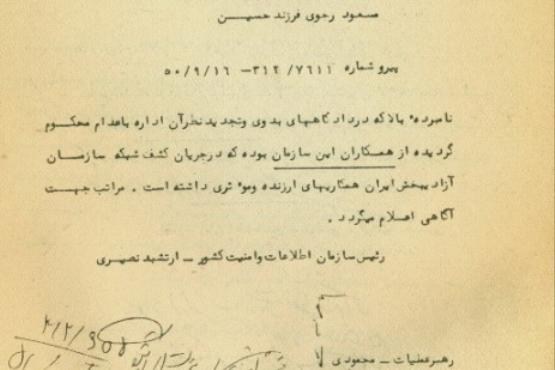 مسعود رجوی فرزند حسین
پیرو شماره ۷۶۱۱/ ۳۱۲- ۵۰/۹/۱۶
نامبرده بالا که درداد گاههای بدوی وتجدید نظرآن اداره باعدام محکوم
گردیده از همکاران این سازمان بوده که درجریان کشف شبکه سازمان
آزاد یبخش ایران همکاریهای ارزنده وموثری داشته است . مراتب جهت
آگاهی اعلام میگردد .
رئیس سازمان اطلاعات وامنیت کشور - ارتشبد نصیری
رهبرعملیات -